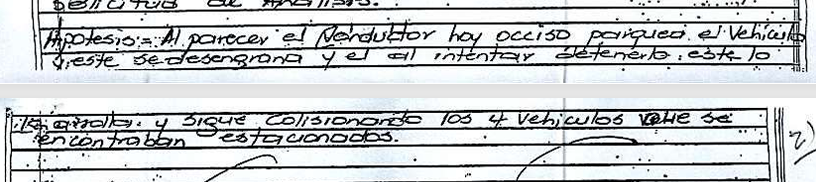 Solicitud de Analisis.
Hipotesis = Al parecer el Conductor hoy occiso parquea el Vehiculo
y este se desengrana y el al intentar detenerlo, este lo
arrolla. y sigue Colisionando los 4 Vehiculos que se
encontraban estacionados.
2)